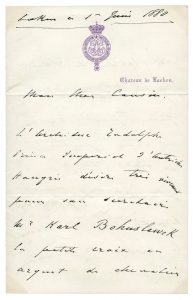 Laeken le 1er Juin 1880
Château de Laeken.
Mon cher Cousin.
L'archiduc Rodolphe
Prince Impérial d'Autriche
Hongrie désire très vivement
pour son secrétaire
Mr Karl Bohuslawek
la petite croix en
argent de chevalier